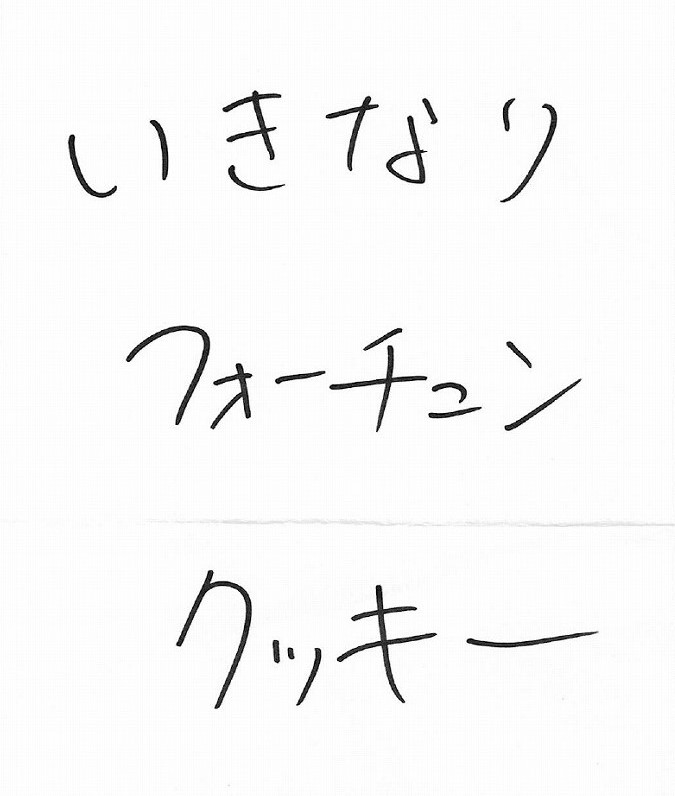 いきなり
フォーチュン
クッキー